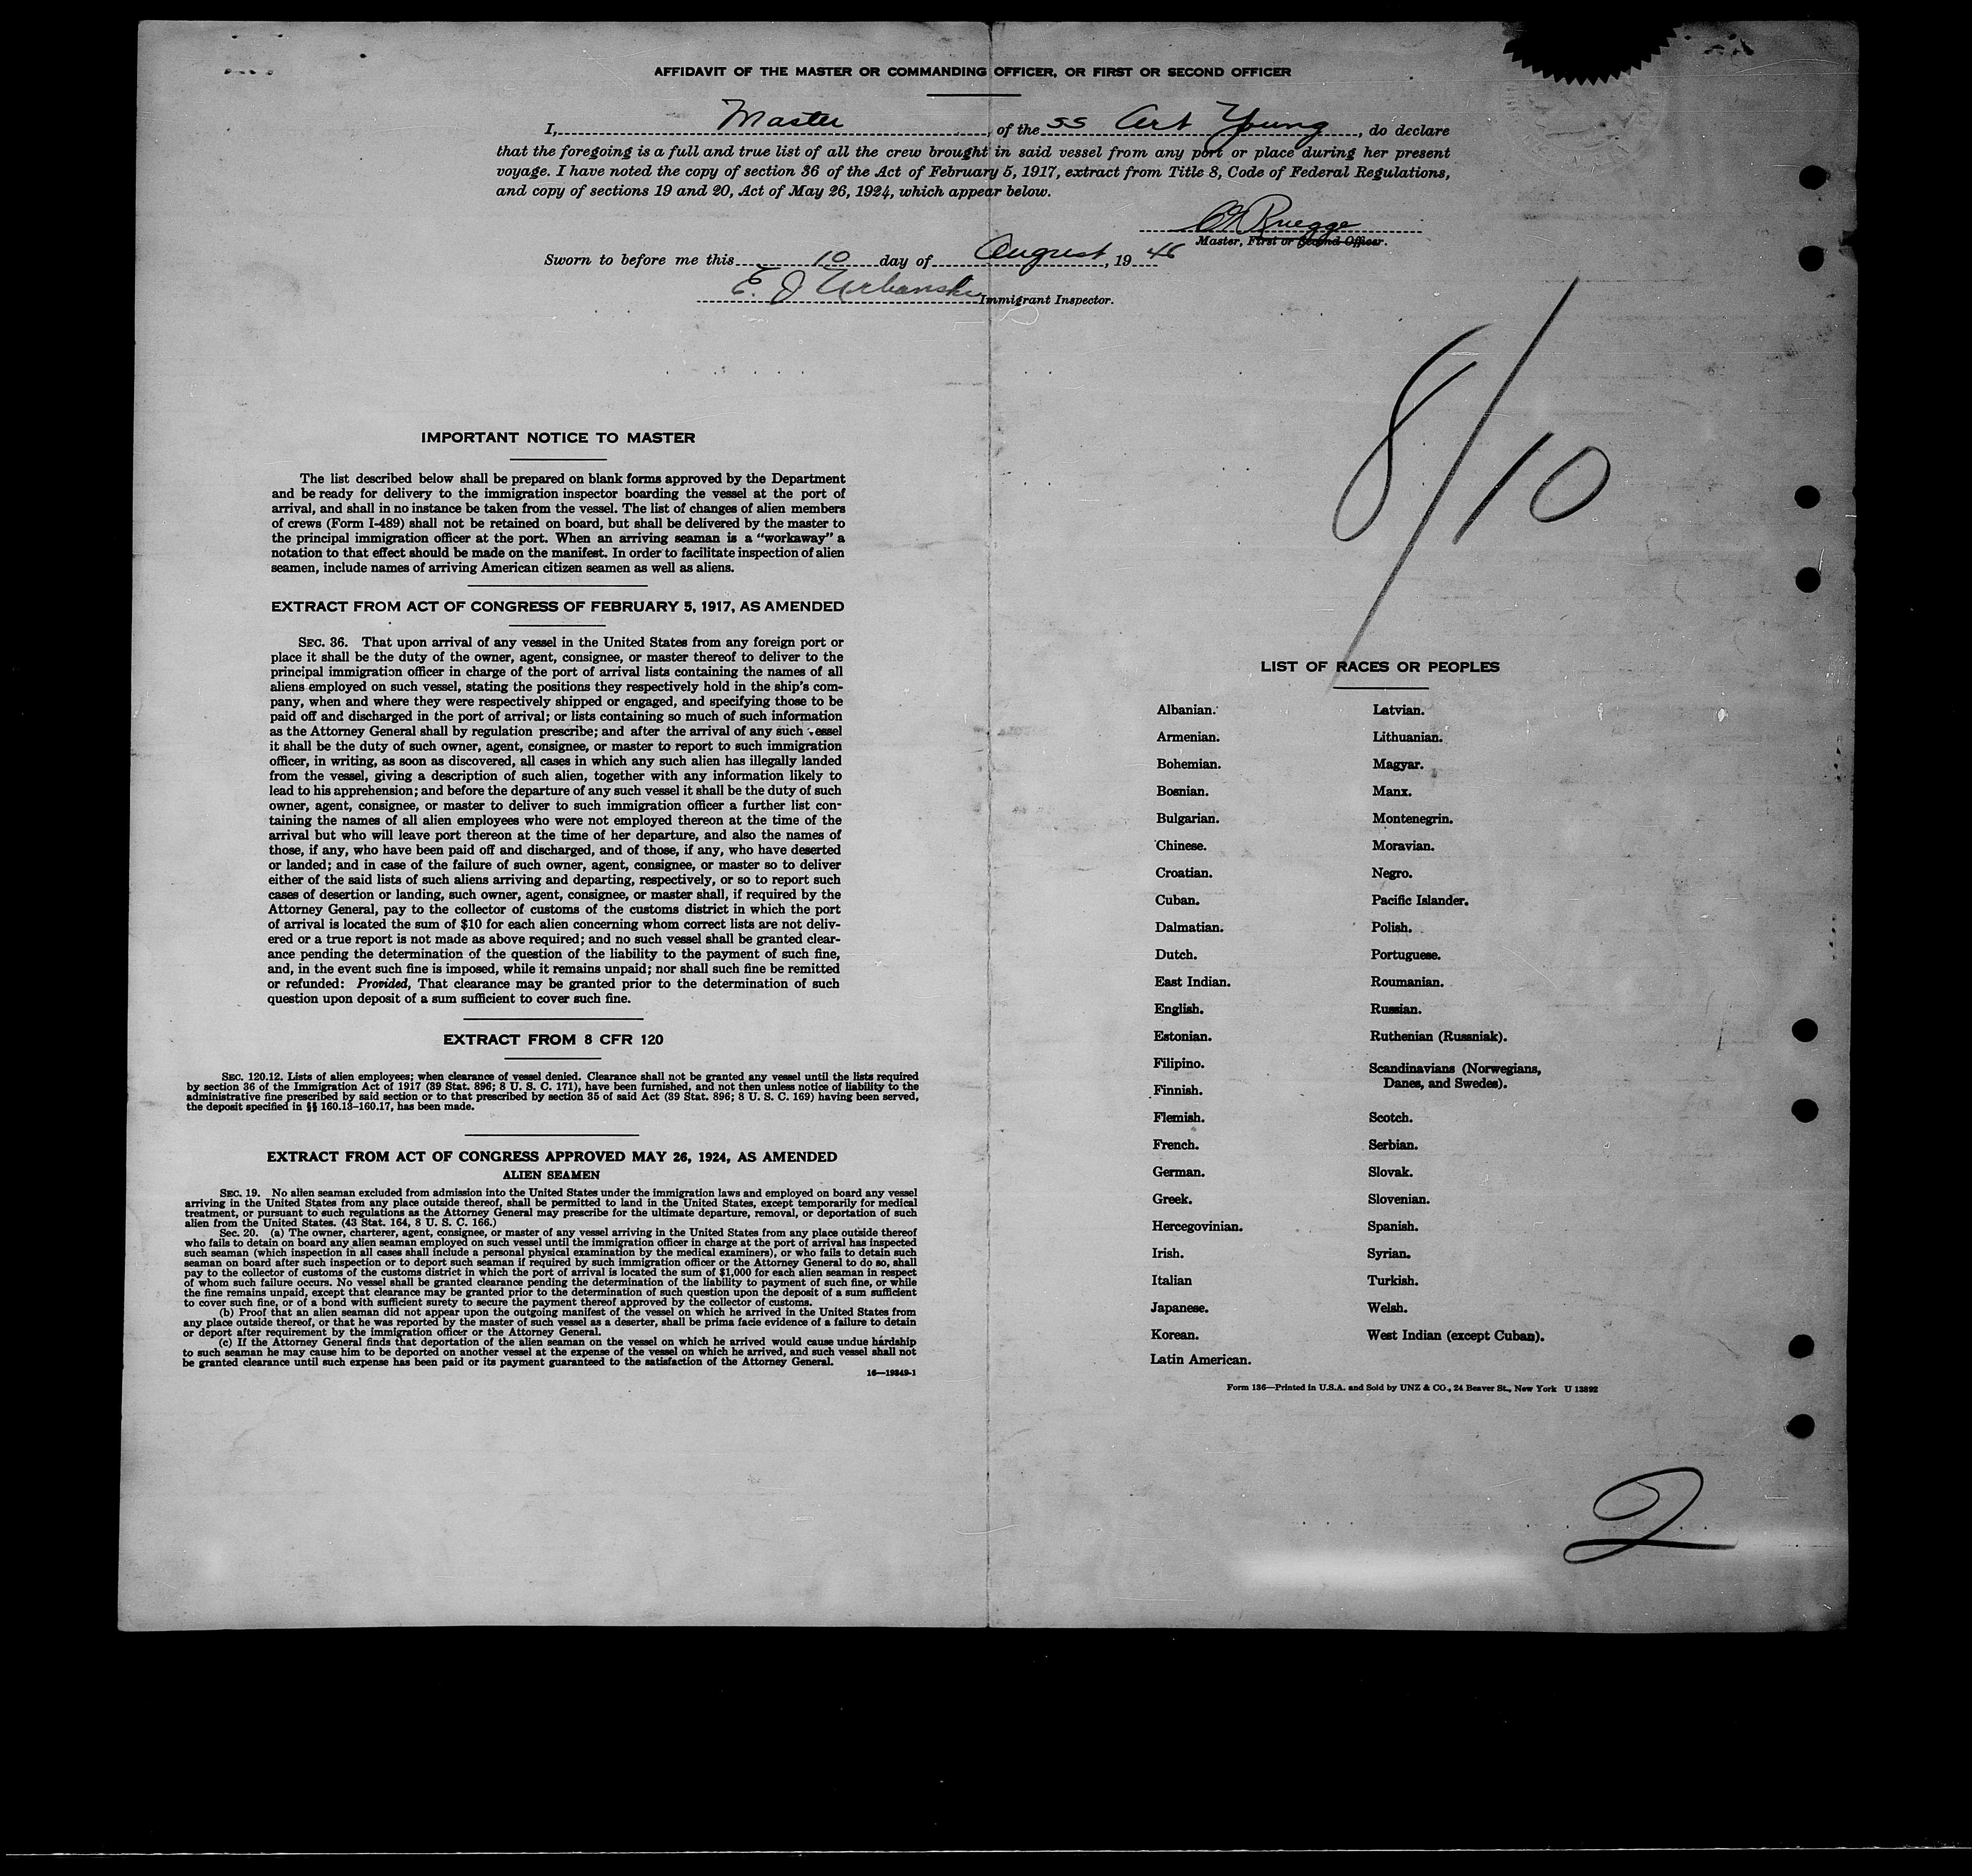 AFFIDAVIT OF THE MASTER OR COMMANDING OFFICER, OR FIRST OR SECOND OFFICER
I, Master, of the SS Art Young, do declare
that the foregoing is a full and true list of all the crew brought in said vessel from any port or place during her present
voyage. I have noted the copy of section 36 of the Act of February 5, 1917, extract from Title 8, Code of Federal Regulations,
and copy of sections 19 and 20, Act of May 26, 1924, which appear below.
Bruegge
Master, First or Second Officer.
Sworn to before me this 10 day of August, 19 46
E. J Urbanski Immigrant Inspector.
8/10
IMPORTANT NOTICE TO MASTER
The list described below shall be prepared on blank forms approved by the Department
and be ready for delivery to the immigration inspector boarding the vessel at the port of
arrival, and shall in no instance be taken from the vessel. The list of changes of alien members
of crews (Form I-489) shall not be retained on board, but shall be delivered by the master to
the principal immigration officer at the port. When an arriving seaman is a "workaway" a
notation to that effect should be made on the manifest. In order to facilitate inspection of alien
seamen, include names of arriving American citizen seamen as well as aliens.
EXTRACT FROM ACT OF CONGRESS OF FEBRUARY 5, 1917, AS AMENDED
SEC. 36. That upon arrival of any vessel in the United States from any foreign port or
place it shall be the duty of the owner, agent, consignee, or master thereof to deliver to the
principal immigration officer in charge of the port of arrival lists containing the names of all
aliens employed on such vessel, stating the positions they respectively hold in the ship's com-
pany, when and where they were respectively shipped or engaged, and specifying those to be
paid off and discharged in the port of arrival; or lists containing so much of such information
as the Attorney General shall by regulation prescribe; and after the arrival of any such vessel
it shall be the duty of such owner, agent, consignee, or master to report to such immigration
officer, in writing, as soon as discovered, all cases in which any such alien has illegally landed
from the vessel, giving a description of such alien, together with any information likely to
lead to his apprehension; and before the departure of any such vessel it shall be the duty of such
owner, agent, consignee, or master to deliver to such immigration officer a further list con-
taining the names of all alien employees who were not employed thereon at the time of the
arrival but who will leave port thereon at the time of her departure, and also the names of
those, if any, who have been paid off and discharged, and of those, if any, who have deserted
or landed; and in case of the failure of such owner, agent, consignee, or master so to deliver
either of the said lists of such aliens arriving and departing, respectively, or so to report such
cases of desertion or landing, such owner, agent, consignee, or master shall, if required by the
Attorney General, pay to the collector of customs of the customs district in which the port
of arrival is located the sum of $10 for each alien concerning whom correct lists are not deliv-
ered or a true report is not made as above required; and no such vessel shall be granted clear-
ance pending the determination of the question of the liability to the payment of such fine,
and, in the event such fine is imposed, while it remains unpaid; nor shall such fine be remitted
or refunded: Provided, That clearance may be granted prior to the determination of such
question upon deposit of a sum sufficient to cover such fine.
EXTRACT FROM 8 CFR 120
SEC. 120.12. Lists of alien employees; when clearance of vessel denied. Clearance shall not be granted any vessel until the lists required
by section 36 of the Immigration Act of 1917 (39 Stat. 896; 8 U. S. C. 171), have been furnished, and not then unless notice of liability to the
administrative fine prescribed by said section or to that prescribed by section 35 of said Act (39 Stat. 896; 8 U. S. C. 169) having been served,
the deposit specified in §§ 160.13–160.17, has been made.
EXTRACT FROM ACT OF CONGRESS APPROVED MAY 26, 1924, AS AMENDED
ALIEN SEAMEN
SEC. 19. No alien seaman excluded from admission into the United States under the immigration laws and employed on board any vessel
arriving in the United States from any place outside thereof, shall be permitted to land in the United States, except temporarily for medical
treatment, or pursuant to such regulations as the Attorney General may prescribe for the ultimate departure, removal, or deportation of such
alien from the United States. (43 Stat. 164, 8 U. S. C. 166.)
Sec. 20. (a) The owner, charterer, agent, consignee, or master of any vessel arriving in the United States from any place outside thereof
who fails to detain on board any alien seaman employed on such vessel until the immigration officer in charge at the port of arrival has inspected
such seaman (which inspection in all cases shall include a personal physical examination by the medical examiners), or who fails to detain such
seaman on board after such inspection or to deport such seaman if required by such immigration officer or the Attorney General to do so, shall
pay to the collector of customs of the customs district in which the port of arrival is located the sum of $1,000 for each alien seaman in respect
of whom such failure occurs. No vessel shall be granted clearance pending the determination of the liability to payment of such fine, or while
the fine remains unpaid, except that clearance may be granted prior to the determination of such question upon the deposit of a sum sufficient
to cover such fine, or of a bond with sufficient surety to secure the payment thereof approved by the collector of customs.
(b) Proof that an alien seaman did not appear upon the outgoing manifest of the vessel on which he arrived in the United States from
any place outside thereof, or that he was reported by the master of such vessel as a deserter, shall be prima facie evidence of a failure to detain
or deport after requirement by the immigration officer or the Attorney General.
(c) If the Attorney General finds that deportation of the alien seaman on the vessel on which he arrived would cause undue hardship
to such seaman he may cause him to be deported on another vessel at the expense of the vessel on which he arrived, and such vessel shall not
be granted clearance until such expense has been paid or its payment guaranteed to the satisfaction of the Attorney General.
16—19849-1
LIST OF RACES OR PEOPLES
Albanian.
Armenian.
Bohemian.
Bosnian.
Bulgarian.
Chinese.
Croatian.
Cuban.
Dalmatian.
Dutch.
East Indian.
English.
Estonian.
Filipino.
Finnish.
Flemish.
French.
German.
Greek.
Hercegovinian.
Irish.
Italian
Japanese.
Korean.
Latin American.
Latvian.
Lithuanian.
Magyar.
Manx.
Montenegrin.
Moravian.
Negro.
Pacific Islander.
Polish.
Portuguese.
Roumanian.
Russian.
Ruthenian (Russniak).
Scandinavians (Norwegians,
Danes, and Swedes).
Scotch.
Serbian.
Slovak.
Slovenian.
Spanish.
Syrian.
Turkish.
Welsh.
West Indian (except Cuban).
Form 136—Printed in U.S.A. and Sold by UNZ & CO., 24 Beaver St., New York U 13892
2